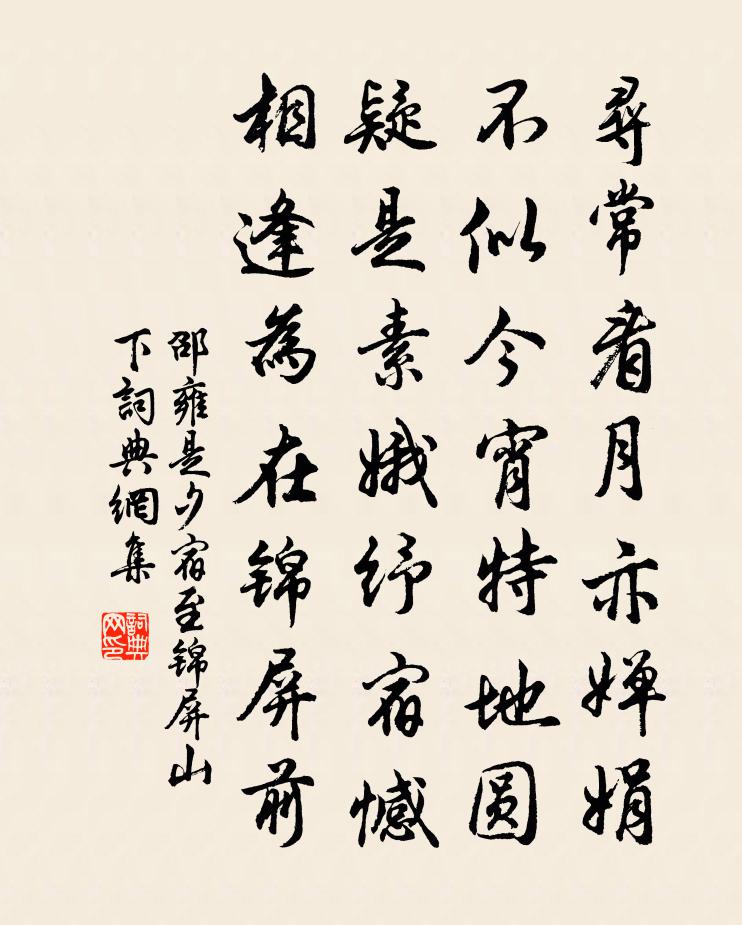 尋常看月亦婵娟
不似今宵特地圆
疑是素娥纾宿憾
相逢為在锦屏前
邵雍是夕宿至锦屏山
下詞典網集
詞典網印